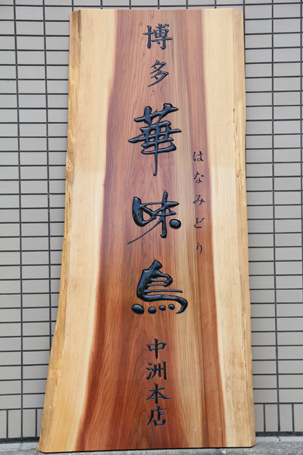 博多華味鳥中洲本店
はなみどり